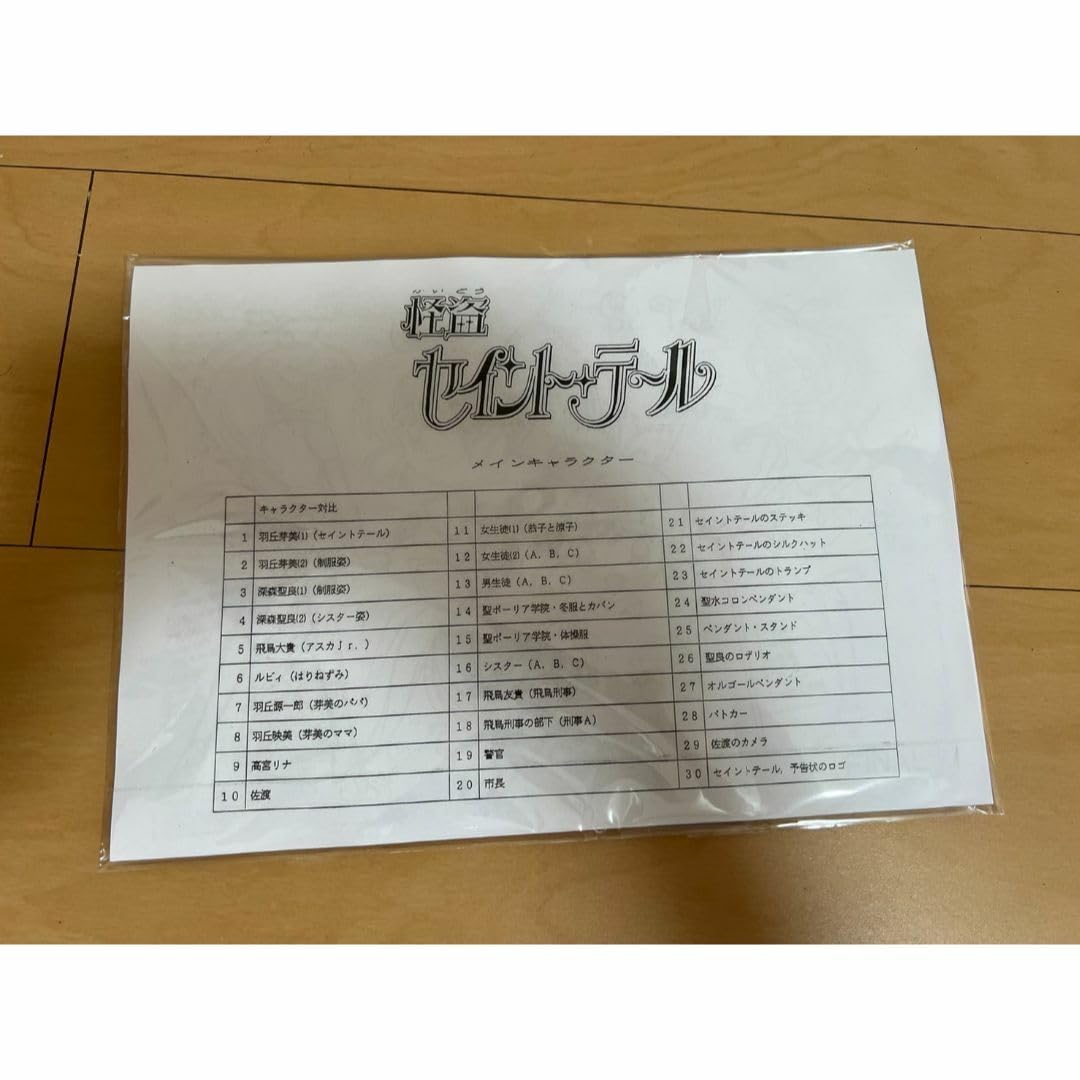 かいとう
怪盗
セイント・テール
メインキャラクター
キャラクター対比
1 羽丘芽美(1)(セイントテール)
2 羽丘芽美(2)(制服姿)
3 深森聖良(1)(制服姿)
4 深森聖良(2)(シスター姿)
5 飛鳥大貴(アスカJr.)
6 ルビィ(はりねずみ)
7 羽丘源一郎(芽美のパパ)
8 羽丘映美(芽美のママ)
9 高宮リナ
10 佐渡
11 女生徒(1)(恭子と涼子)
12 女生徒(2)(A,B,C)
13 男生徒(A,B,C)
14 聖ポーリア学院・冬服とカバン
15 聖ポーリア学院・体操服
16 シスター(A,B,C)
17 飛鳥友貴(飛鳥刑事)
18 飛鳥刑事の部下(刑事A)
19 警官
20 市長
21 セイントテールのステッキ
22 セイントテールのシルクハット
23 セイントテールのトランプ
24 聖水コロンペンダント
25 ペンダント・スタンド
26 聖良のロザリオ
27 オルゴールペンダント
28 パトカー
29 佐渡のカメラ
30 セイントテール,予告状のロゴ